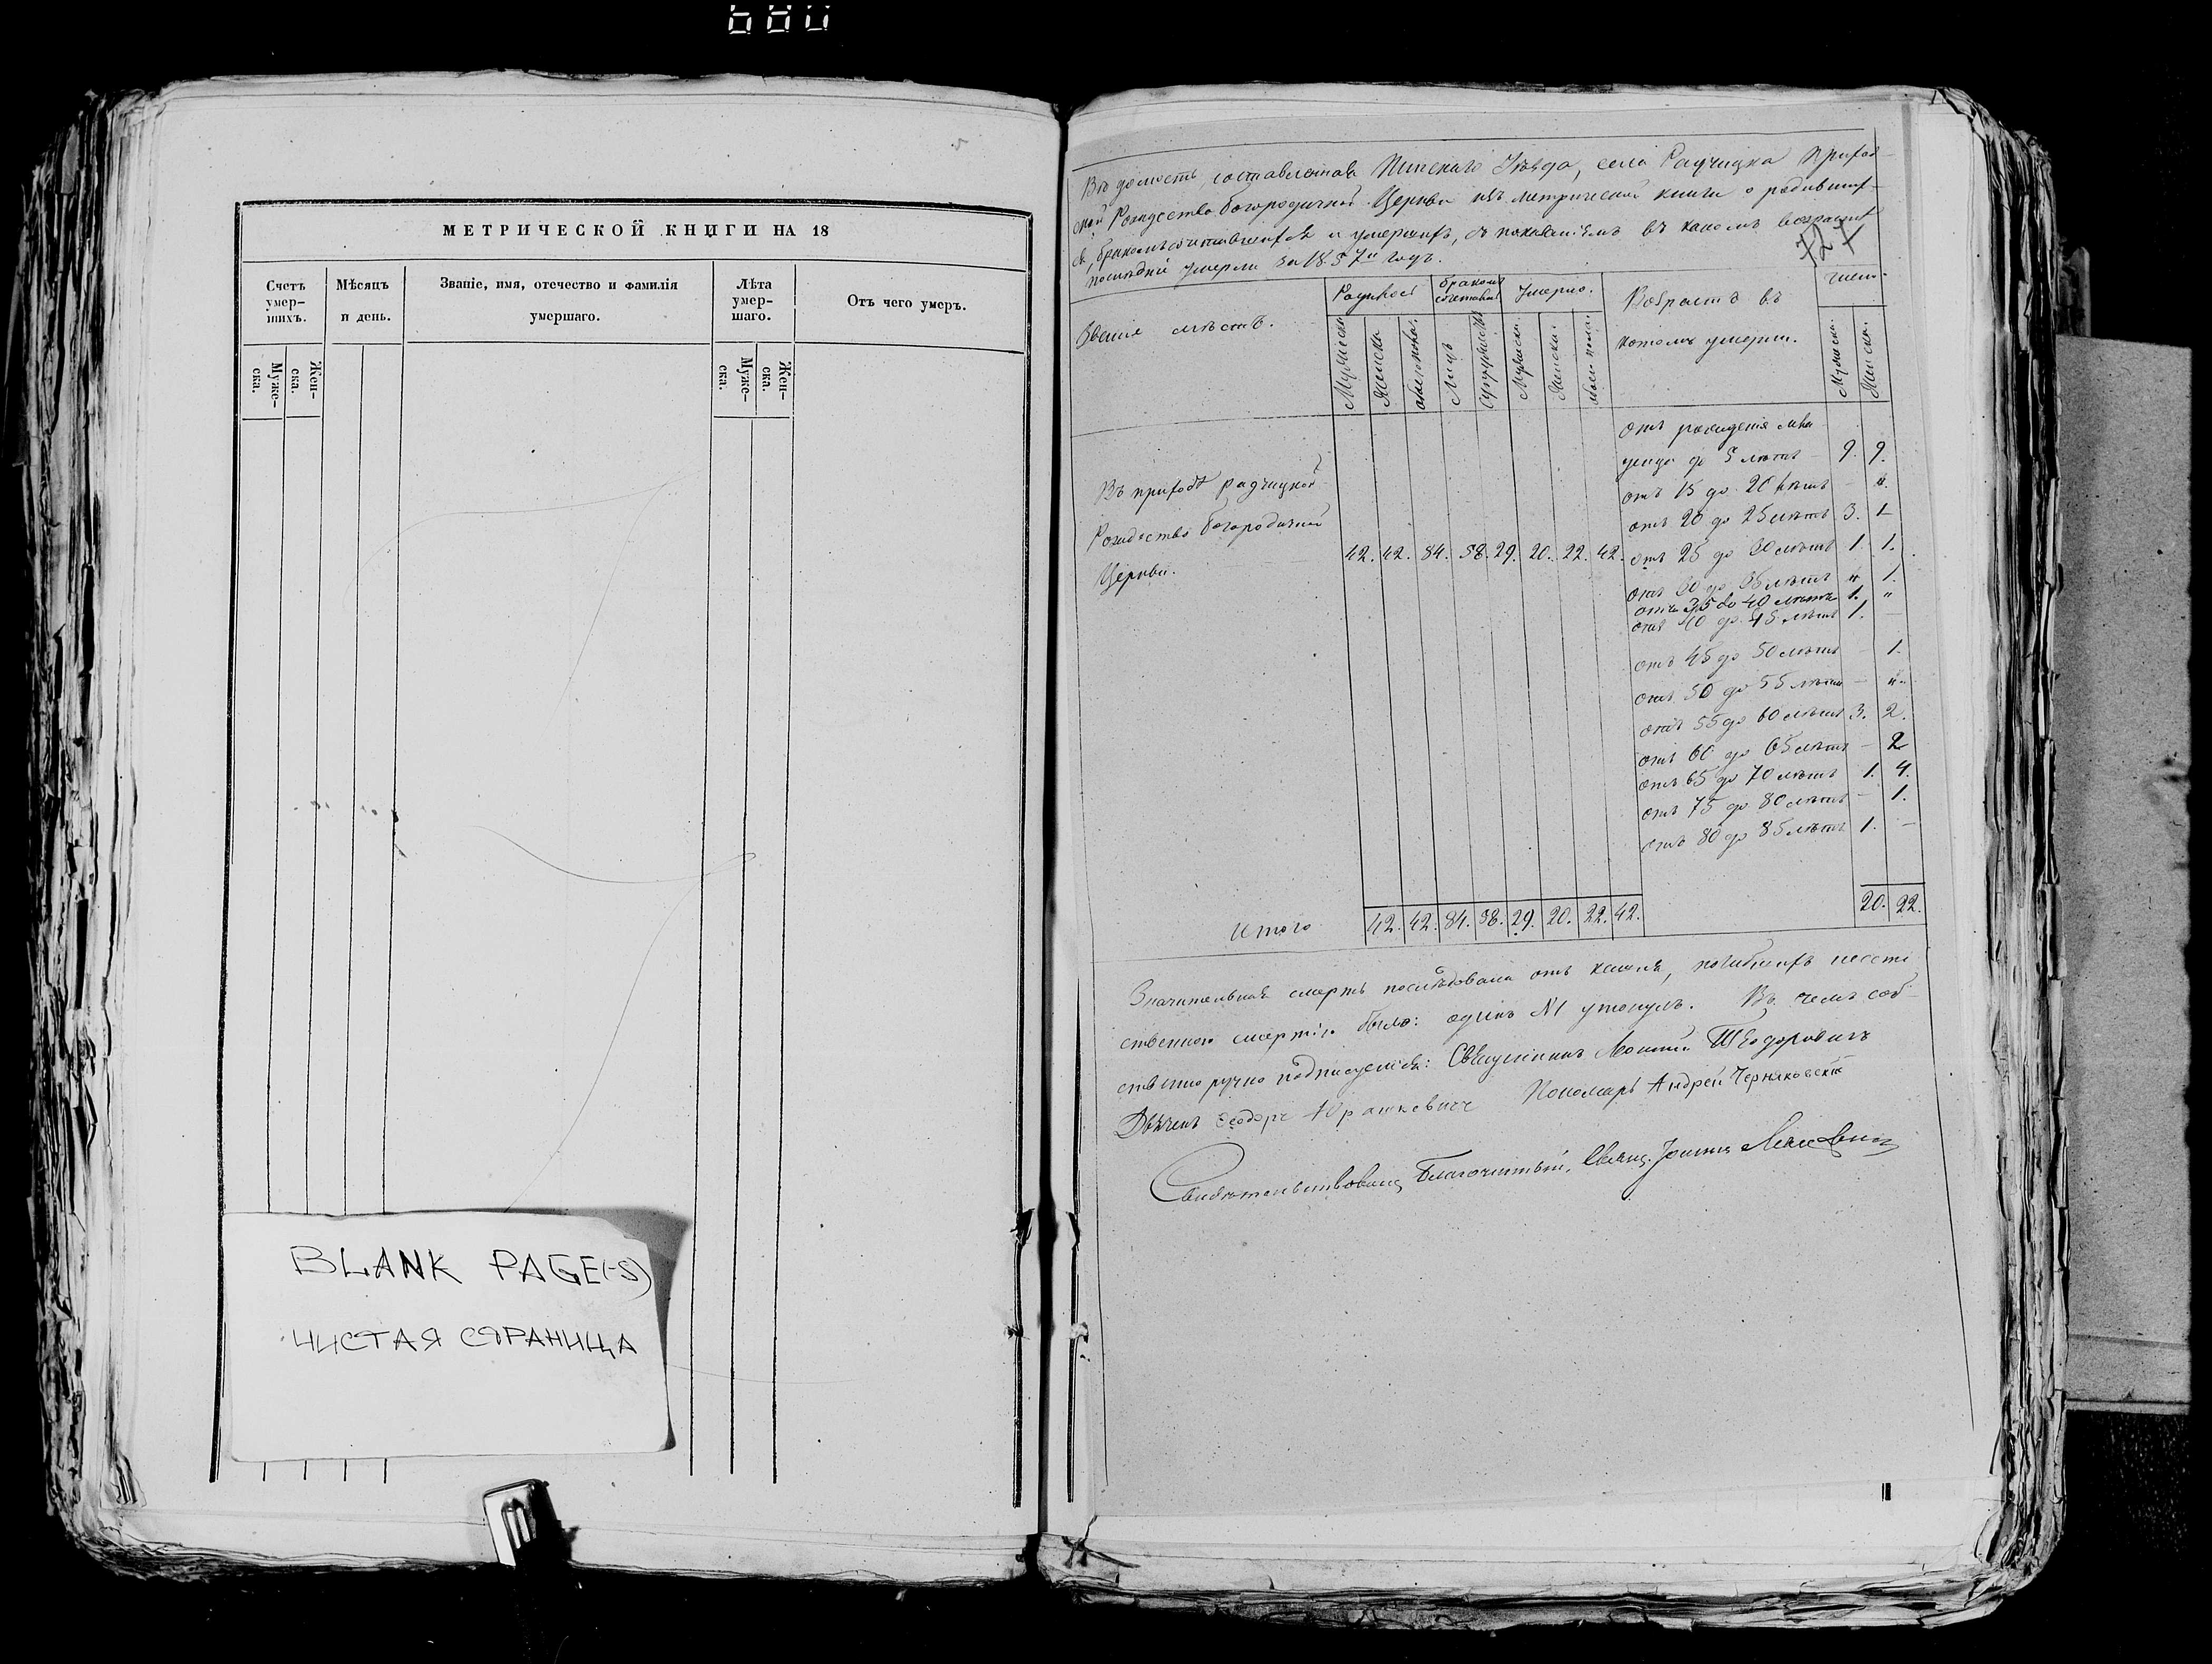 680
МЕТРИЧЕСКОЙ КНИГИ НА 18
Счетъ умер-шихъ.
Муже-ска.
Жен-ска.
Мѣсяцъ и день.
Званіе, имя, отечество и фамилія умершаго.
Лѣта умер-шаго.
Муже-ска.
Жен-ска.
Отъ чего умеръ.
BLANK PAGE(-S)
ЧИСТАЯ СТРАНИЦА
Вѣдомость, составленная Пинскаго Уѣзда, села Радчицка приход-
ской Рождество богородичной Церкви изъ метрической книги о родивших-
ся, бракомъ сочитавшихся и умершихъ, съ показаніемъ въ какомъ возрастѣ
послѣдніе умерли за 1857й годъ.
727
Званіе мѣстъ.
Родилось
Мужеска
Женска
обоего пола.
бракомъ сочетавш
Лицъ
Супружествъ
Умерло.
Мужеска.
Женска.
обоего пола.
Возрастъ въ
которомъ умерли.
число.
Мужеска.
Женска.
Въ приходѣ Радчицкой
Рождество богородичной
Церкви.
42. 42. 84. 58. 29. 20. 22. 42.
отъ рожденія мла
денца до 5 лѣтъ 9. 9.
отъ 15 до 20 лѣтъ - "
отъ 20 до 25 лѣтъ 3. 1
отъ 25 до 30 лѣтъ 1. 1.
отъ 30 до 35 лѣтъ " 1.
отъ 35 до 40 лѣтъ 1. "
отъ 40 до 45 лѣтъ 1. -
отъ 45 до 50 лѣтъ - 1.
отъ 50 до 55 лѣтъ - "
отъ 55 до 60 лѣтъ 3. 2.
отъ 60 до 65 лѣтъ - 2
отъ 65 до 70 лѣтъ 1. 4.
отъ 75 до 80 лѣтъ - 1.
отъ 80 до 85 лѣтъ 1. -
20. 22.
Итого 42. 42. 84. 58. 29. 20. 22. 42.
Значительная смерть послѣдовала отъ кашля, погибшихъ неесте
ственною смертію было: одинъ №1 утонулъ. Въ чемъ соб-
ственноручно подписуемся: Священникъ Ѳеодоровичъ
Дьячекъ Ѳеодоръ Юрашкевичъ Пономарь Андрей Черняковскій
Свидѣтельствовалъ Благочинный, Свящ. Іоаннъ